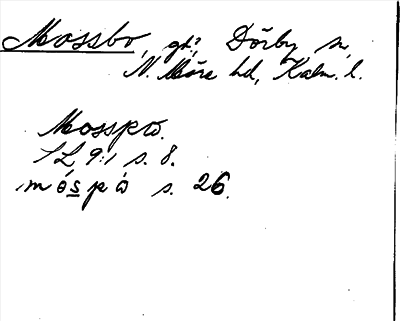 Mossbo, gd?, Dörby sn,
N. Möre hd, Kalm. l.
Mosspo.
SL 9:1 s. 8.
móspò s. 26.